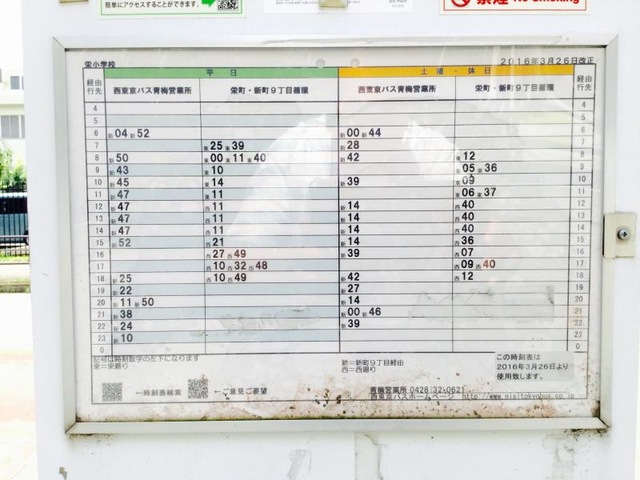 簡単にアクセスすることができます。
禁煙 No Smoking
栄小学校 2016年3月26日改正
平日 土曜・休日
経由 行先 西東京バス青梅営業所 栄町・新町9丁目循環 西東京バス青梅営業所 栄町・新町9丁目循環 経由 行先
4 4
5 5
6 新04 新52 新00 新44 6
7 東25 東39 新28 7
8 新50 東00 東11 東40 新42 東12 8
9 新43 東10 東05 東36 9
10 新45 東14 新39 東09 10
11 新47 西11 東06 東37 11
12 新47 西11 新14 西40 12
13 新47 西11 新14 西40 13
14 新47 西11 新14 西40 14
15 新52 西21 新14 西36 15
16 西27 西49 新39 西07 16
17 西10 西32 西48 西09 西40 17
18 新25 西10 西49 新42 西12 18
19 新22 新27 19
20 新11 新50 新14 20
21 新38 新00 新46 21
22 新24 新39 22
23 新10 23
0 0
記号は時刻数字の左下になります 新=新町9丁目経由 この時刻表は
東=東廻り 西=西廻り 2016年3月26日より
使用致します。
←時刻表検索 ←ご意見ご要望 青梅営業所 0428(32)0621
西東京バスホームページ http://www.nisitokyobus.co.jp